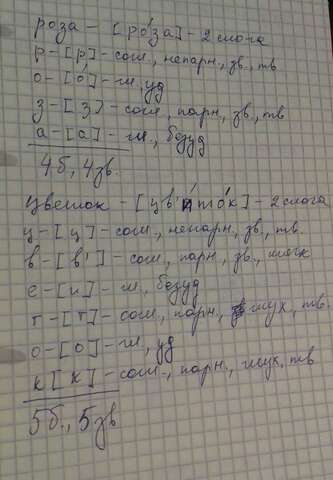 роза – [ро́за] – 2 слога
р – [р] – сог., непарн., зв., тв
о – [о́] – гл., уд
з – [з] – сог., парн., зв., тв
а – [а] – гл., безуд
4б, 4зв.
Цветок – [цв'ито́к] – 2 слога
ц – [ц] – сог., непарн., зв., тв.
в – [в'] – сог., парн., зв., мягк
е – [и] – гл., безуд
т – [т] – сог., парн, глух, тв.
о – [о] – гл, уд
к [к] – сог., парн., глух, тв
5б., 5зв